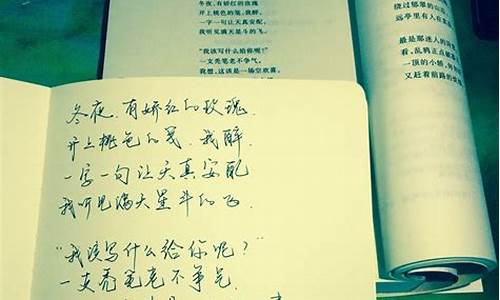 冬夜，有娇红的玫瑰
开上桃色的笺，我醉，
一字一句让天真安配，
我听见满天星斗的飞。
“我该写什么给你呢？”
一支秃笔老不争气。
我想，这该是一场空欢喜，
绕过郁翠的山
远亭里有人在
最是那迷人的
看，乱鸦正点
一顶的小轿，
又赶着前路的
冬夜，有娇红的玫瑰
开上桃色的笺，我醉，
一字一句让天真安配
我听见满天星斗的飞.
“我该写什么给你呢？”
一支秃笔老不争气.